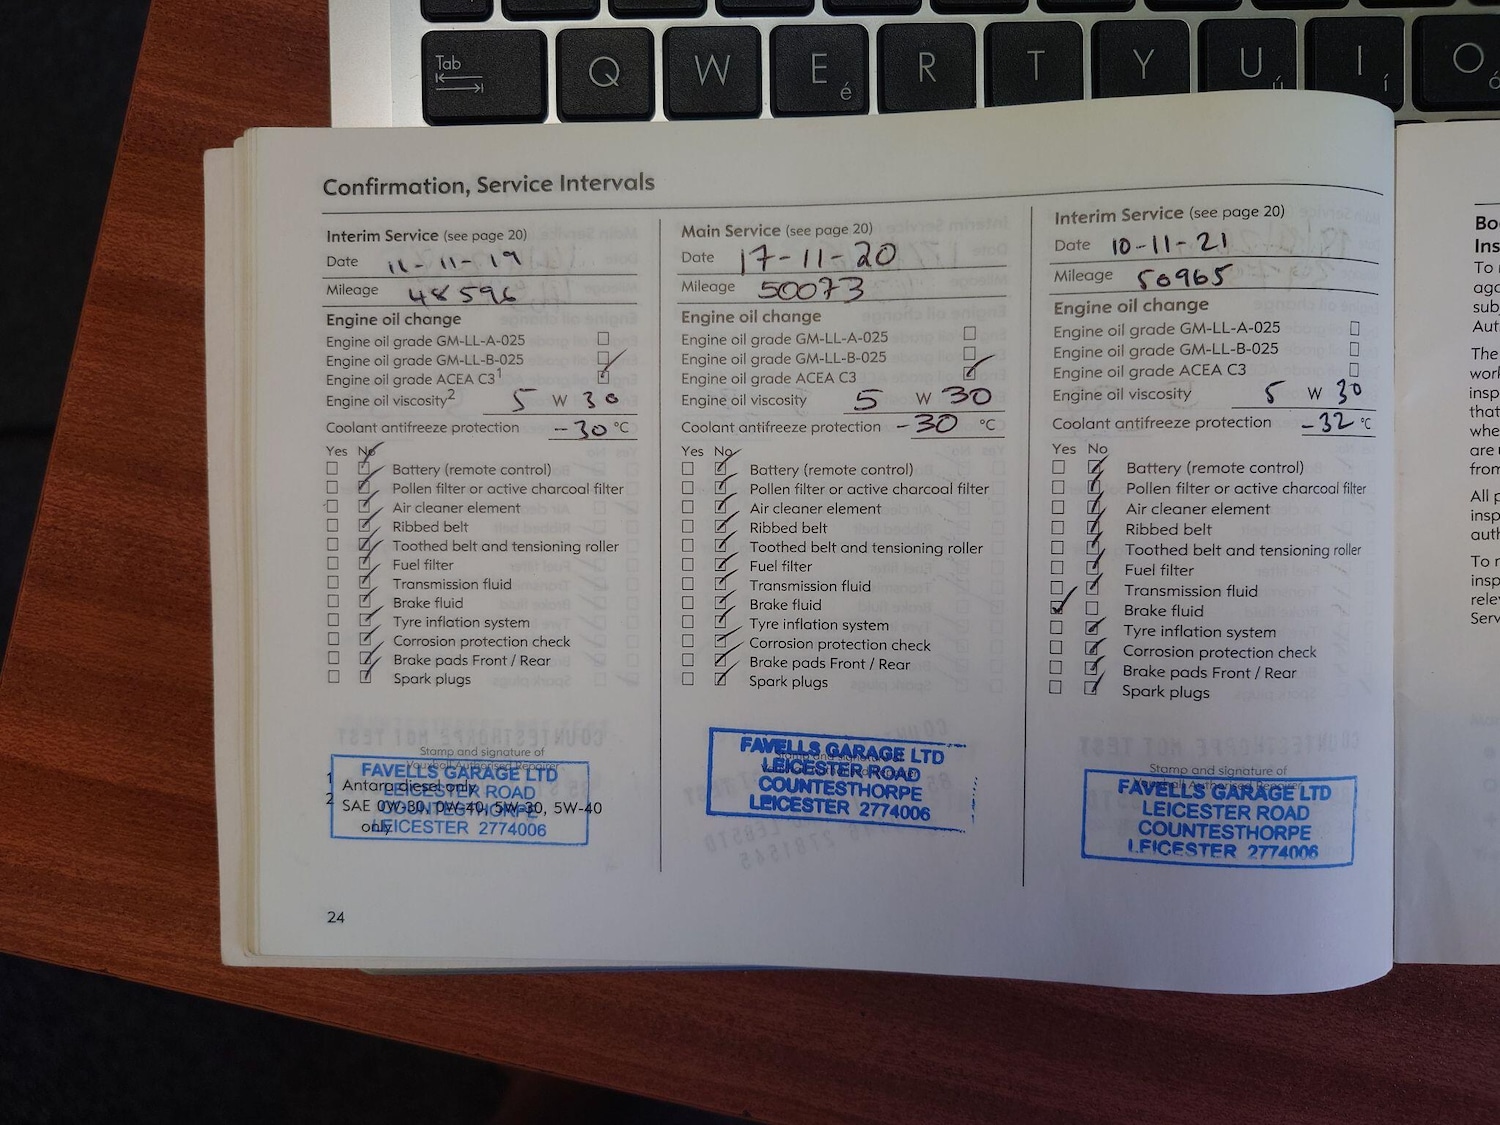 Tab
Q W E R T Y U I O
é ú í ó
Confirmation, Service Intervals
Interim Service (see page 20)
Date 11-11-19
Mileage 48596
Engine oil change
Engine oil grade GM-LL-A-025
Engine oil grade GM-LL-B-025
Engine oil grade ACEA C3¹
Engine oil viscosity² 5 W 30
Coolant antifreeze protection -30 °C
Yes No
Battery (remote control)
Pollen filter or active charcoal filter
Air cleaner element
Ribbed belt
Toothed belt and tensioning roller
Fuel filter
Transmission fluid
Brake fluid
Tyre inflation system
Corrosion protection check
Brake pads Front / Rear
Spark plugs
Stamp and signature of
Vauxhall Authorised Repairer
FAVELLS GARAGE LTD
LEICESTER ROAD
COUNTESTHORPE
LEICESTER 2774006
1 Antara diesel only
2 SAE 0W-30, 0W-40, 5W-30, 5W-40
only
24
Main Service (see page 20)
Date 17-11-20
Mileage 50073
Engine oil change
Engine oil grade GM-LL-A-025
Engine oil grade GM-LL-B-025
Engine oil grade ACEA C3
Engine oil viscosity 5 W 30
Coolant antifreeze protection -30 °C
Yes No
Battery (remote control)
Pollen filter or active charcoal filter
Air cleaner element
Ribbed belt
Toothed belt and tensioning roller
Fuel filter
Transmission fluid
Brake fluid
Tyre inflation system
Corrosion protection check
Brake pads Front / Rear
Spark plugs
FAVELLS GARAGE LTD
LEICESTER ROAD
COUNTESTHORPE
LEICESTER 2774006
Interim Service (see page 20)
Date 10-11-21
Mileage 50965
Engine oil change
Engine oil grade GM-LL-A-025
Engine oil grade GM-LL-B-025
Engine oil grade ACEA C3
Engine oil viscosity 5 W 30
Coolant antifreeze protection -32 °C
Yes No
Battery (remote control)
Pollen filter or active charcoal filter
Air cleaner element
Ribbed belt
Toothed belt and tensioning roller
Fuel filter
Transmission fluid
Brake fluid
Tyre inflation system
Corrosion protection check
Brake pads Front / Rear
Spark plugs
Stamp and signature of
Vauxhall Authorised Repairer
FAVELLS GARAGE LTD
LEICESTER ROAD
COUNTESTHORPE
LEICESTER 2774006
Bo
Ins
To
aga
sub
Aut
The
work
insp
that
whe
are
from
All p
insp
auth
To
insp
rele
Serv